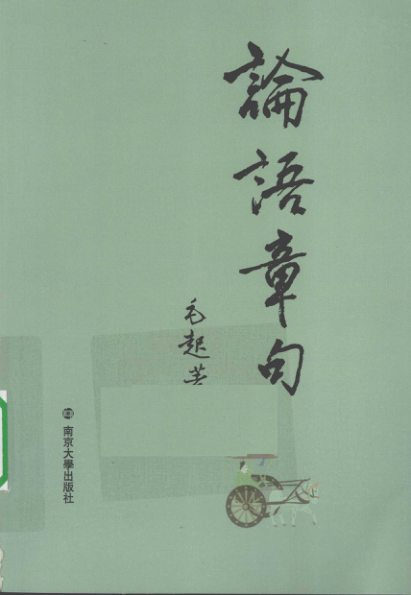 論語章句
毛起著
南京大學出版社